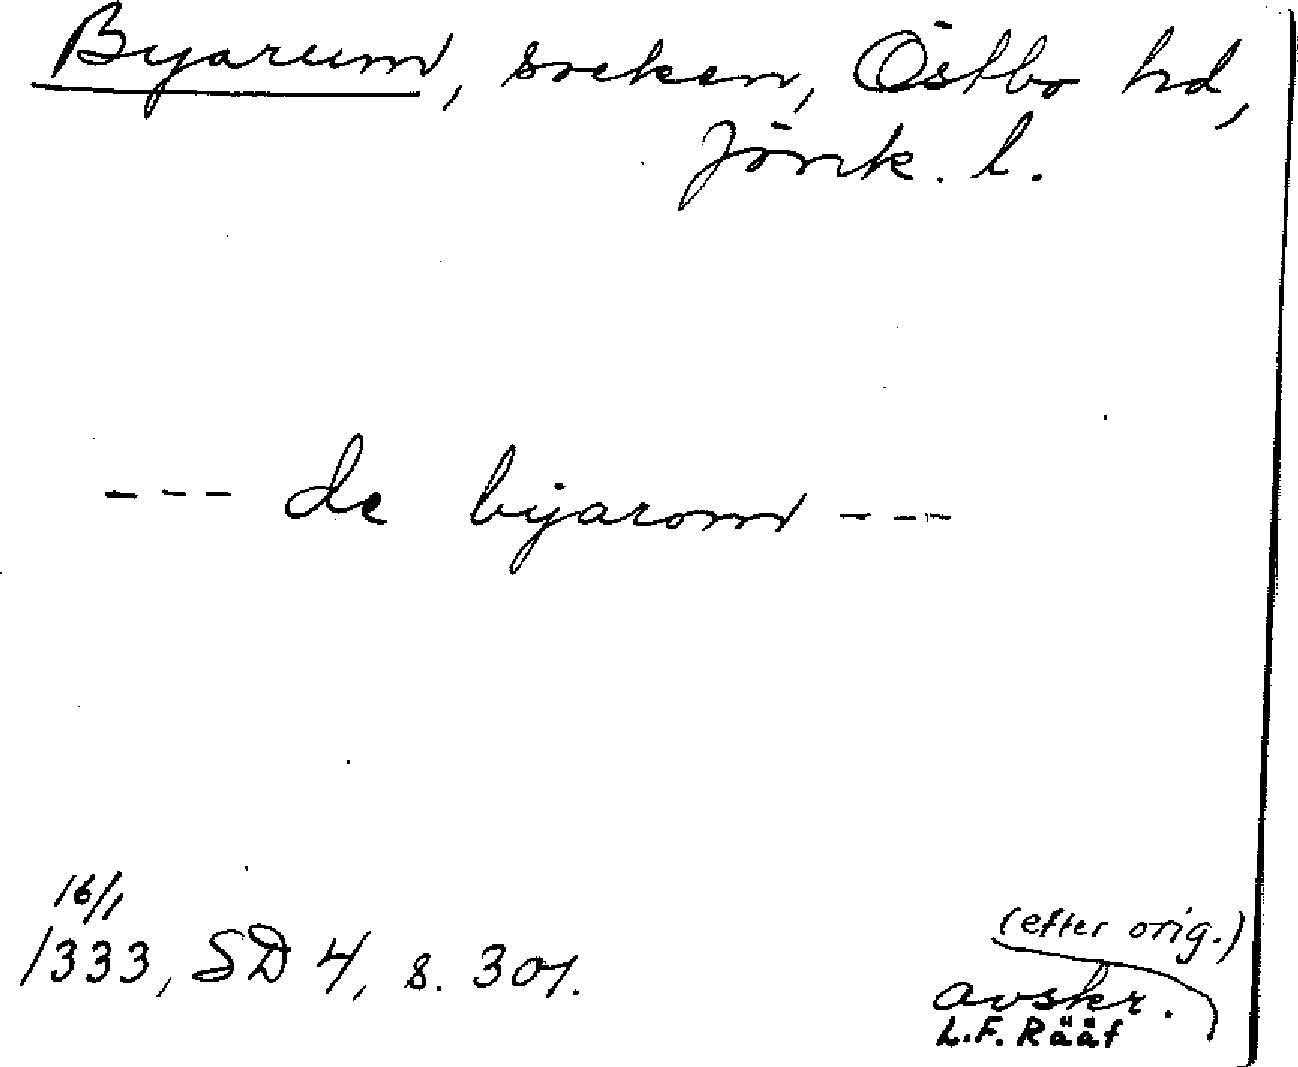 Byarum, socken, Östbo hd,
Jönk. l.
--- de byarom ---
16/1
1333, SD 4, s. 301.
(efter orig.)
avskr.
L.F. Rääf